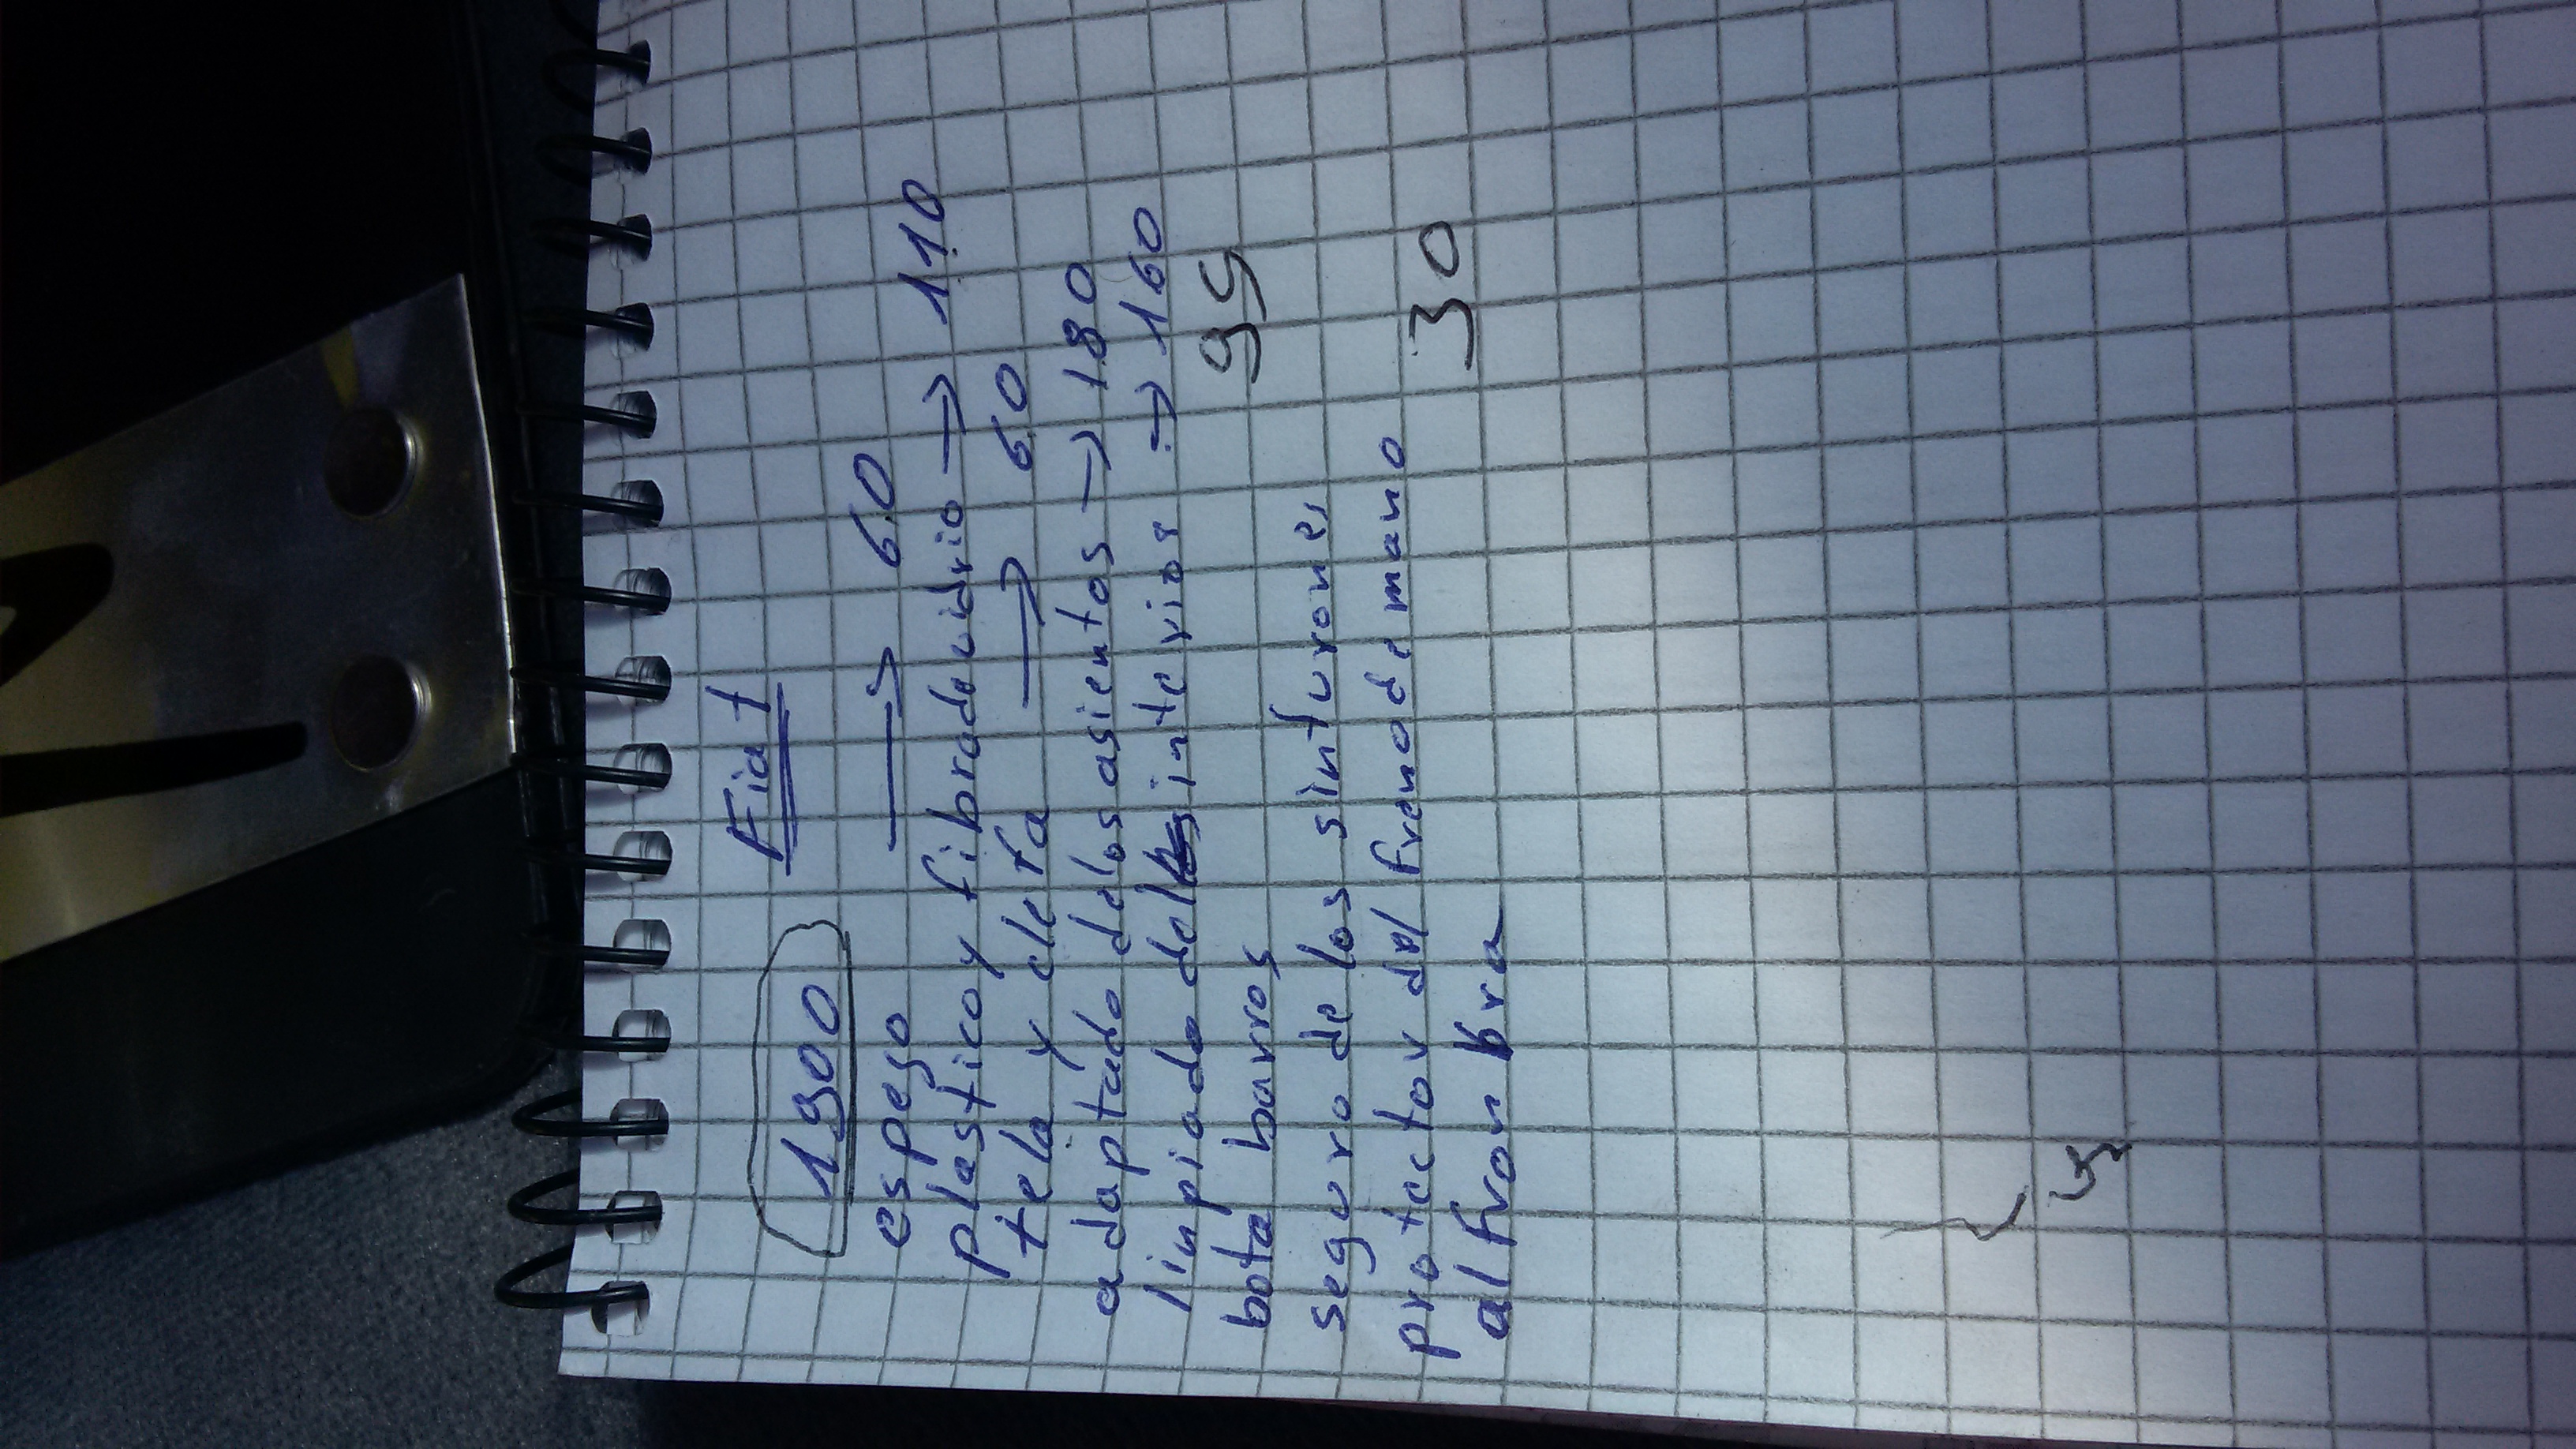 Fiat
1900
espego → 60
plastico y fibra de vidrio → 110
tela y clefa → 60
adaptado de los asientos → 180
linpiado del interior → 160
bota barros 95
seguro de los sinturones
protector del freno de mano
alfronbra 30